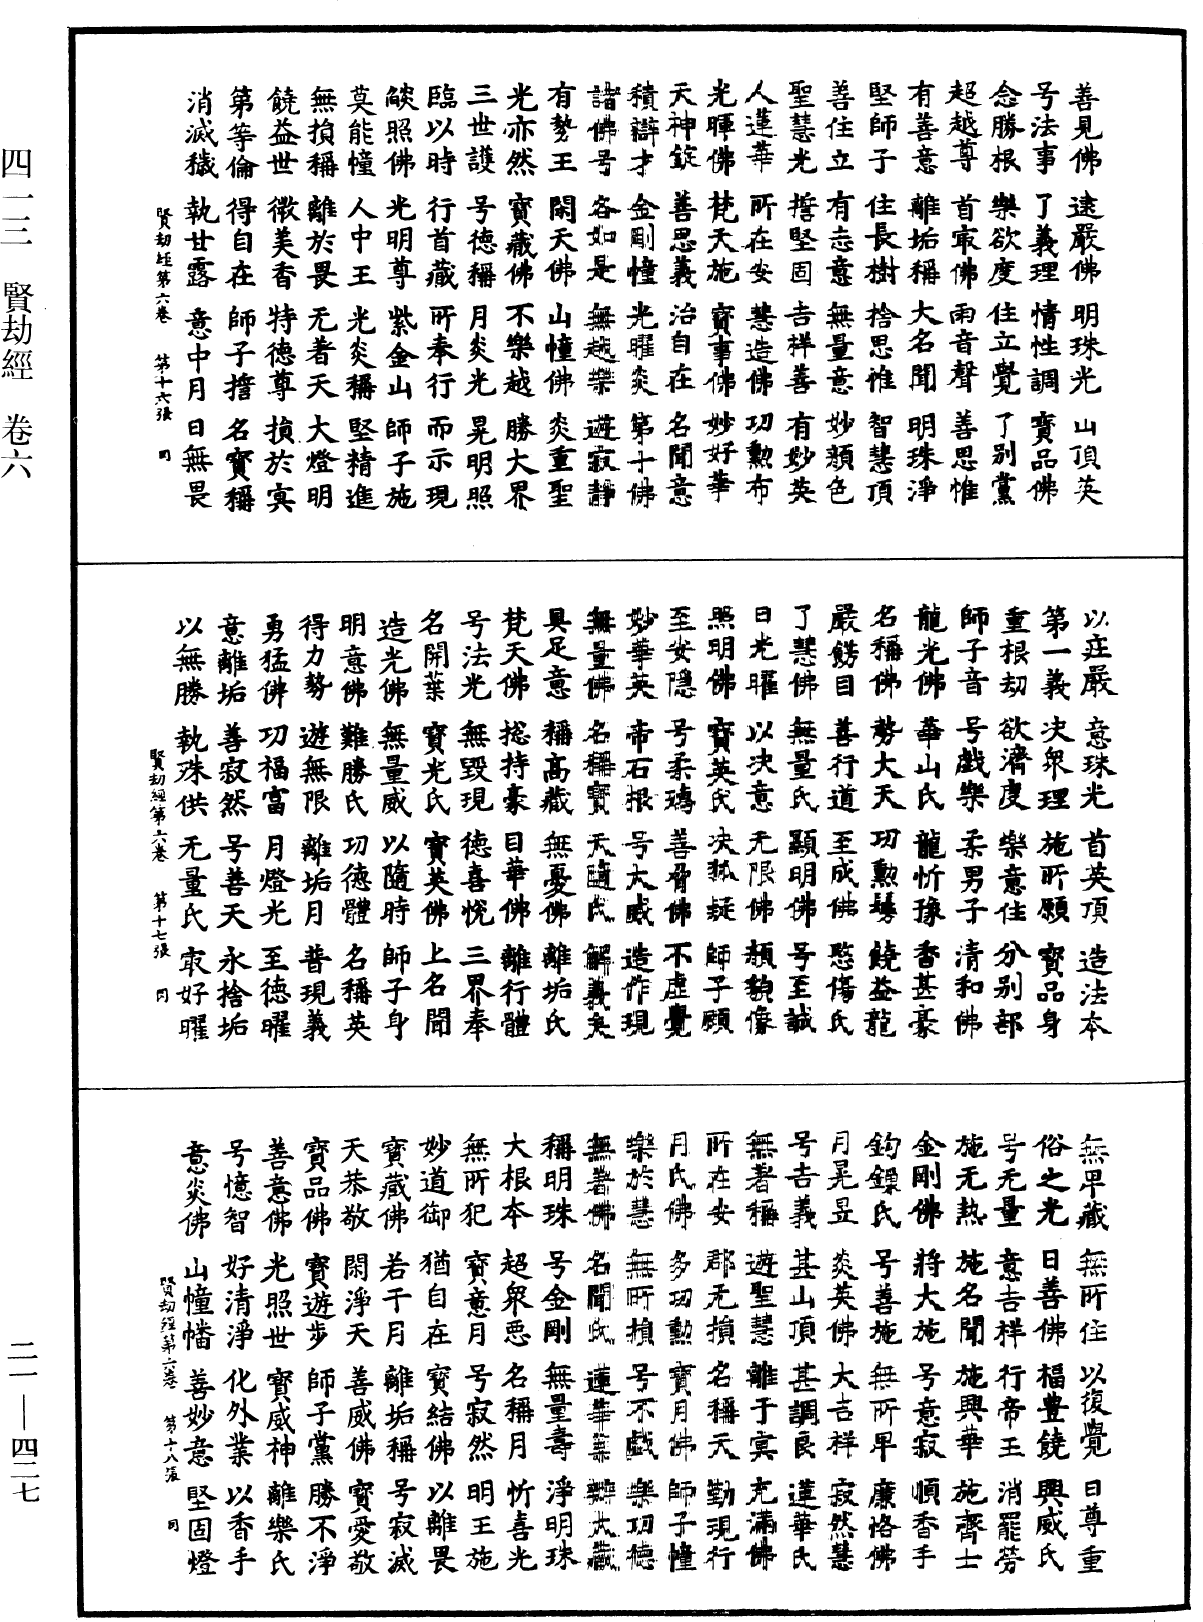 善見佛 遠嚴佛 明珠光 山頂英
号法事 了義理 情性調 寶品佛
念勝根 樂欲度 住立覺 了別黨
超越尊 首冣佛 雨音聲 善思惟
有善意 離垢稱 大名聞 明珠淨
堅師子 住長樹 捨思惟 智慧頂
善住立 有志意 無量意 妙顏色
聖慧光 擔堅固 吉祥善 有妙英
人蓮華 所在安 慧造佛 功勳布
光暉佛 梵天施 寶事佛 妙好華
天神錠 善思義 治自在 名聞意
積辯才 金剛幢 光曜炎 第十佛
諸佛号 各如是 無越樂 遊寂靜
有勢王 閑天佛 山幢佛 炎重聖
光亦然 寶藏佛 不樂越 勝大界
三世護 号德稱 月炎光 晃明照
臨以時 行首藏 所奉行 而示現
燄照佛 光明尊 紫金山 師子施
莫能幢 人中王 光炎稱 堅精進
無損稱 離於畏 无著天 大燈明
饒益世 微美香 特德尊 損於冥
第等倫 得自在 師子擔 名寶稱
消滅穢 執甘露 意中月 日無畏
賢劫經第六卷 第十六張 同
以莊嚴 意珠光 首英頂 造法本
第一義 决衆理 施所願 寶品身
重根劫 欲濟度 樂意住 分别部
師子音 号戲樂 柔男子 清和佛
龍光佛 華山氏 龍忻豫 香甚豪
名稱佛 勢大天 功勳鬘 饒益龍
嚴飾目 善行道 至成佛 愍傷氏
了慧佛 無量氏 顯明佛 号至誠
日光曜 以决意 无限佛 顏貌像
照明佛 寶英氏 决狐疑 師子願
至安隱 号柔璃 善脅佛 不虛覺
妙華英 帝石根 号大威 造作現
無量佛 名稱寶 天隨氏 解義矣
具足意 稱高藏 無憂佛 離垢氏
梵天佛 捴持豪 目華佛 離行體
号法光 無毀現 德喜悅 三界奉
名開葉 寶光氏 寶英佛 上名聞
造光佛 無量威 以隨時 師子身
明意佛 難勝氏 功德體 名稱英
得力勢 遊無限 離垢月 普現義
勇猛佛 功福富 月燈光 至德曜
意離垢 善寂然 号善天 永捨垢
以無勝 執殊供 无量氏 冣好曜
賢劫經第六卷 第十七張 同
無卑藏 無所住 以復覺 日尊重
俗之光 日善佛 福豊饒 興威氏
号无量 意吉祥 行帝王 消罷勞
施无熱 施名聞 施興華 施齊士
金剛佛 將大施 号意寂 順香手
鈎鏁氏 号善施 無所卑 廉恪佛
月晃昱 炎英佛 大吉祥 寂然慧
号吉義 甚山頂 甚調良 蓮華氏
無著稱 遊聖慧 離于冥 充滿佛
所在安 郡无損 名稱天 勤現行
月氏佛 多功勳 寶月佛 師子幢
樂於慧 無所損 号不戲 樂功德
無著佛 名聞氏 蓮華葉 辯大藏
稱明珠 号金剛 無量壽 淨明珠
大根本 超衆悪 名稱月 忻喜光
無所犯 寶意月 号寂然 明王施
妙道御 猶自在 寶結佛 以離畏
寶藏佛 若干月 離垢稱 号寂滅
天恭敬 閑淨天 善威佛 寶愛敬
寶品佛 寶遊步 師子黨 勝不淨
善意佛 光照世 寶威神 離樂氏
号憶智 好清淨 化外業 以香手
意炎佛 山幢幡 善妙意 堅固燈
賢劫經第六卷 第十八張 同
四一三 賢劫經 卷六
二一—四二七